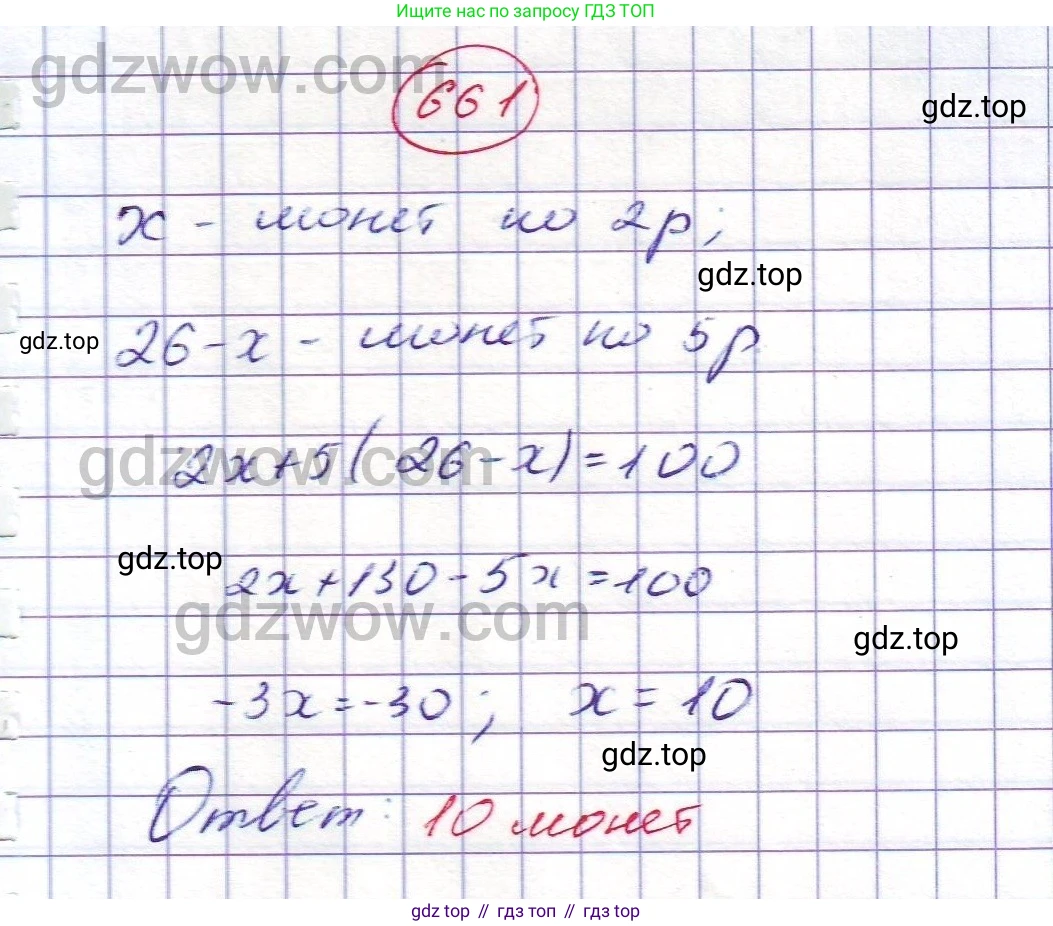 Ищите нас по запросу ГДЗ ТОП
gdzwow.com
661
gdz.top
x - монет по 2р;
gdz.top
gdz.top
26-x - монет по 5р
gdzwow.com
2x+5(26-x)=100
gdz.top
2x+130-5x=100
gdzwow.com
gdz.top
-3x=-30; x=10
gdz.top
Ответ: 10 монет
gdz.top // гдз топ // gdz.top